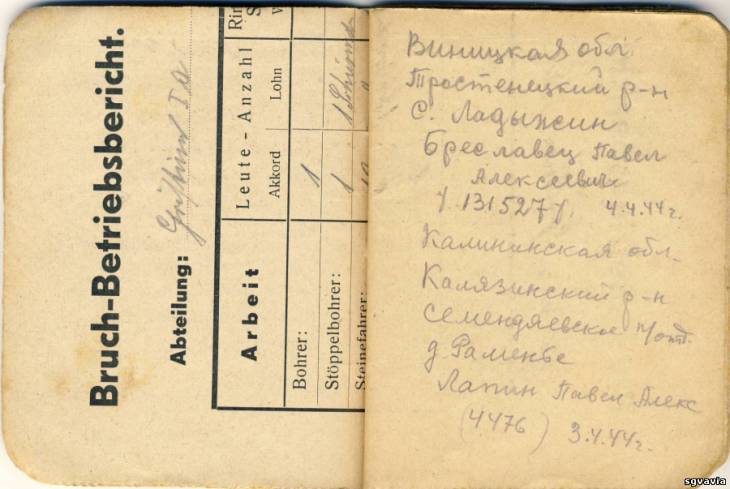 Bruch-Betriebsbericht.
Abteilung:
Arbeit
Leute - Anzahl
Akkord
Lohn
Bohrer:
1
Stöppelbohrer:
1
Steinefahrer:
Виницкая обл.
Тростенецкий р-н
С. Ладыжин
Бреславец Павел
Алексеевич
131527 4.4.44г.
Калининская обл.
Калязинский р-н
Семендяевское п/отд.
д. Раменье
Лапин Павел Алекс
(4476) 3.4.44г.
sgvavia